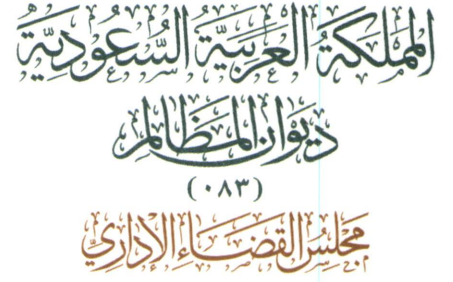 المملكة العربية السعودية
ديوان المظالم
(٠٨٣)
مجلس القضاء الإداري